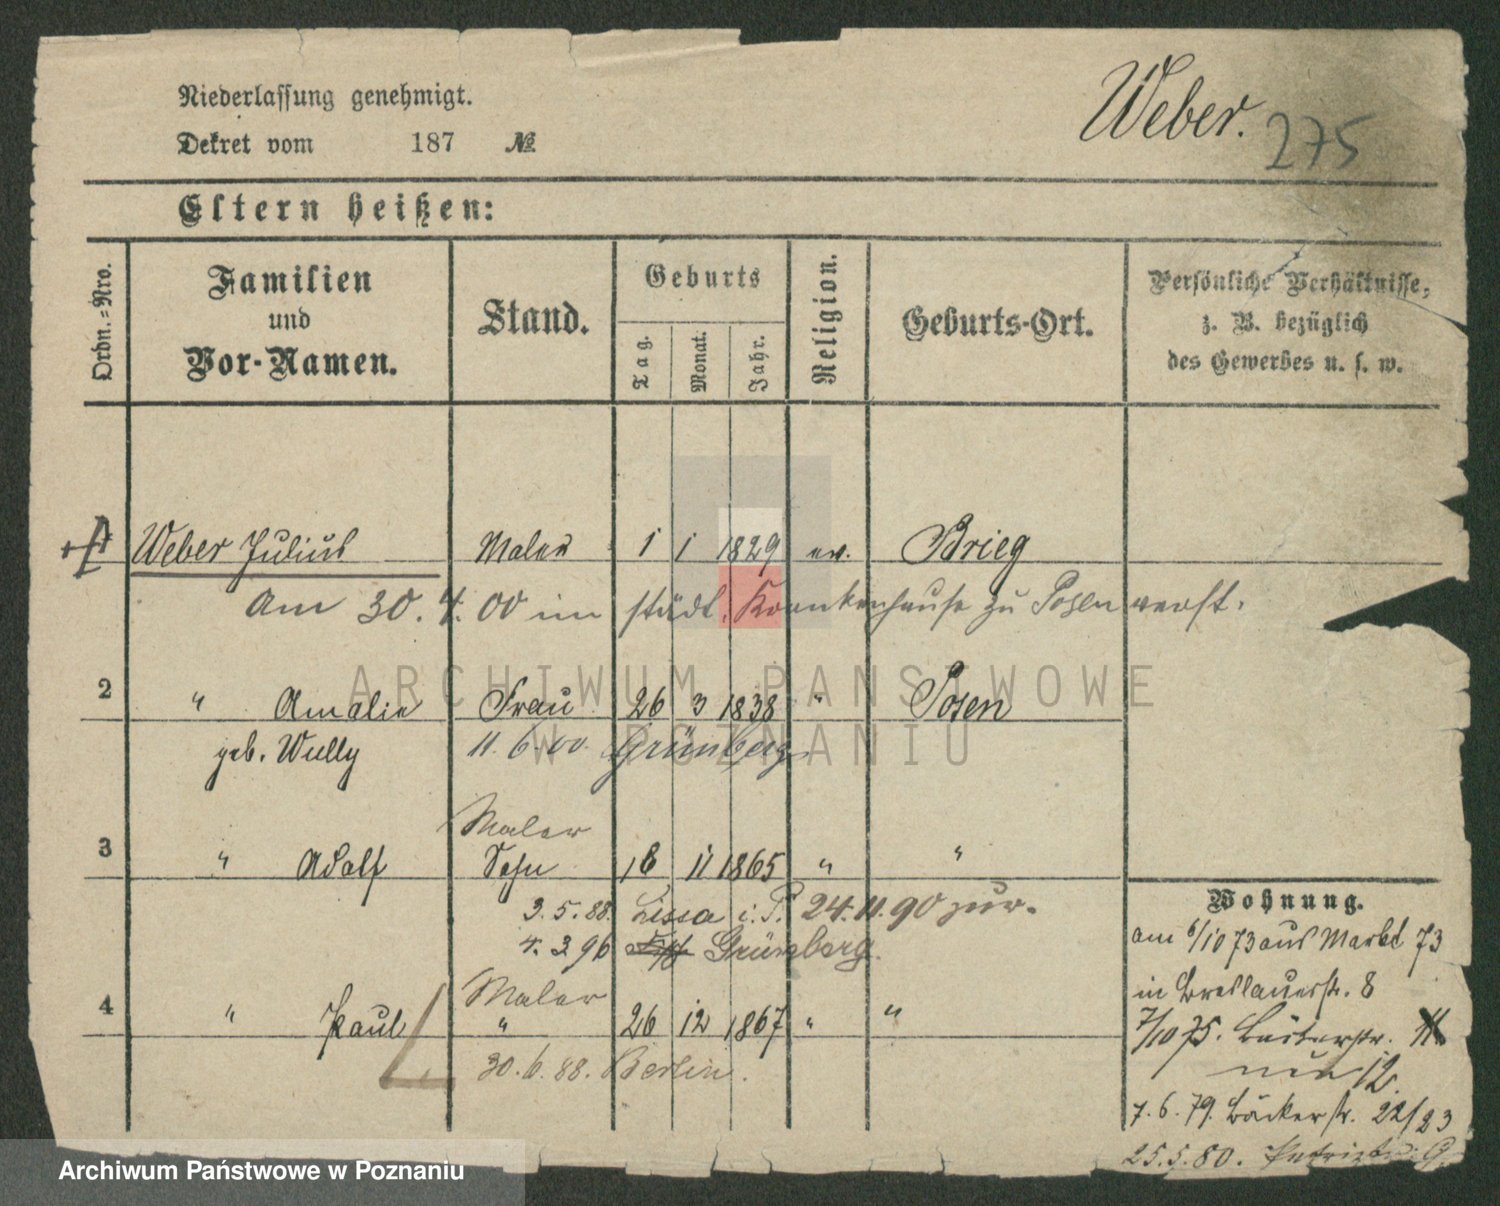 Niederlassung genehmigt.
Weber.
275
Dekret vom 187 №
Eltern heißen:
Ordn.=Nro.
Familien
und
Vor-Namen.
Stand.
Geburts
Tag.
Monat.
Jahr.
Religion.
Geburts-Ort.
Persönliche Verhältnisse,
z. B. bezüglich
des Gewerbes u. s. w.
Weber Julius Maler 1 1 1829 ev. Brieg
Am 30.4.00 im städt. Krankenhause zu Posen verst.
2 " Amalie Frau 26 3 1838 " Posen
geb. Wully 11.6.00. Grünberg.
Maler
3 " Adolf Sohn 16 11 1865 " "
3.5.88. Lissa i. P. 24.11.90 zur.
4.3.96 Grünberg.
Maler
4 " Paul " 26 12 1867 " "
30.6.88. Berlin.
Wohnung.
am 6/10 73 aus Markt 73
in Breslauerstr. 8
7/10 75. 11
nun 12
7.6.79. Bäckerstr. 22/23
25.5.80.
ARCHIWUM PAŃSTWOWE
W POZNANIU
Archiwum Państwowe w Poznaniu